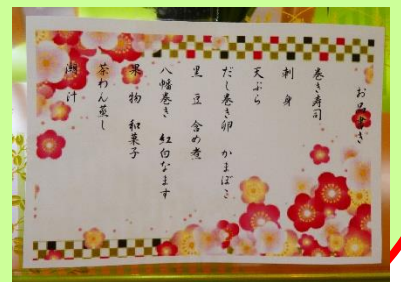 お品書き
巻き寿司
刺身
天ぷら
だし巻き卵 かまぼこ
黒豆 含め煮
八幡巻き 紅白なます
果物 和菓子
茶わん蒸し
潮汁